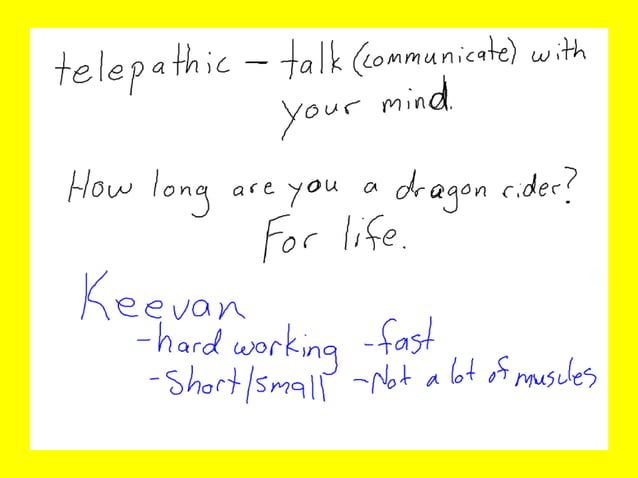 telepathic - talk (communicate) with
your mind.
How long are you a dragon rider?
For life.
Keevan
-hard working -fast
-Short/small -Not a lot of muscles